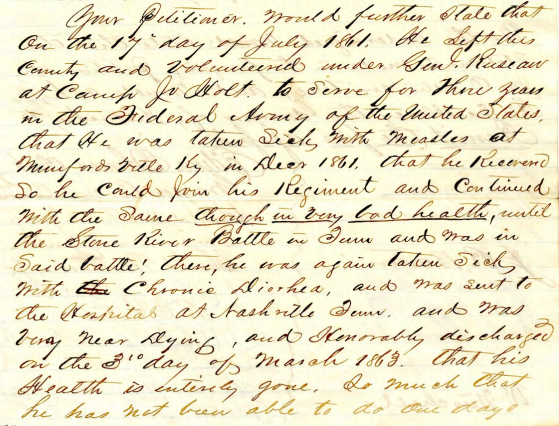 Your Petitioner. would further State that
On the 17th day of July 1861. He Left this
County and Volunteered under Genl. Ruseau
at Camp Jo Holt. to Serve for Three years
in the Federal Army of the United States,
that He was taken Sick with Measles at
Munfords ville Ky in Decr 1861. that he Recoverd
So he Could Join his Regiment and Continued
with the Same though in very bad health, until
the Stone River Battle in Tenn and was in
Said battle, then, he was again taken Sick
with the Chronic Diorhea, and was sent to
the Hospital at Nashville Tenn. and was
very near Dying, and Honorably discharged
on the 3rd day of March 1863. that his
Health is intirely gone. So much that
he has not been able to do one days